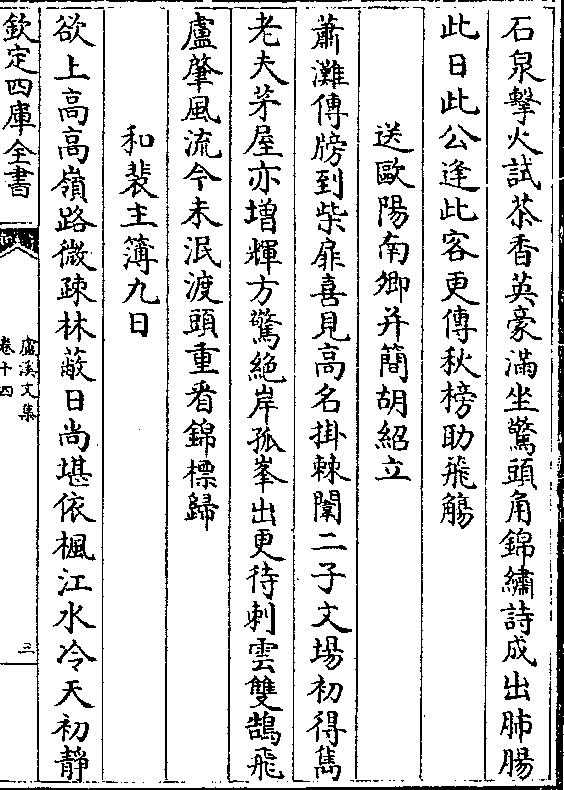 石泉擊火試茶香英豪滿坐驚頭角錦繡詩成出肺腸
此日此公逢此客更傳秋榜助飛觴
送歐陽南卿并簡胡紹立
蕭灘傳牓到柴扉喜見高名掛棘闈二子文場初得雋
老夫茅屋亦增輝方驚絶岸孤峯出更待刺雲雙鵠飛
盧肇風流今未泯渡頭重看錦標歸
和裴主簿九日
欲上高高嶺路微疎林蔽日尚堪依楓江水冷天初静
欽定四庫全書
盧溪文集
卷十四
三